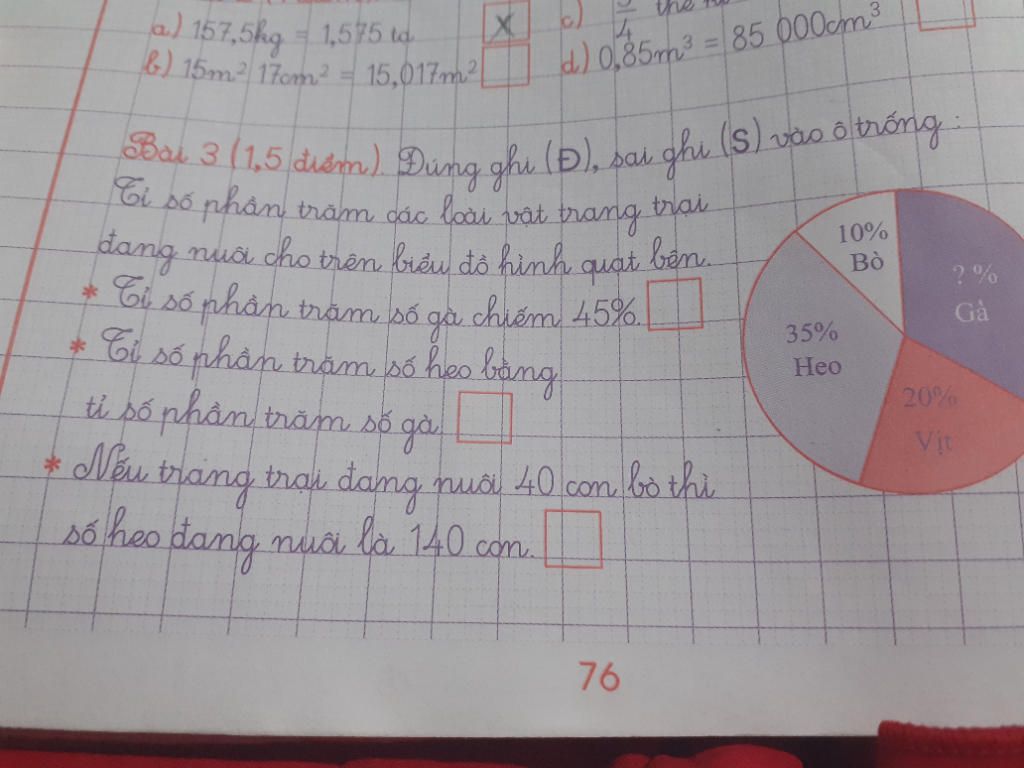 a) 157,5kg = 1,575 tạ X c) 3/4
b) 15m² 17cm² = 15,017m² d) 0,85m³ = 85 000cm³
Bài 3 (1,5 điểm). Đúng ghi (Đ), sai ghi (S) vào ô trống:
Tỉ số phần trăm các loài vật trang trại
đang nuôi cho trên biểu đồ hình quạt bên.
* Tỉ số phần trăm số gà chiếm 45%.
* Tỉ số phần trăm số heo bằng
tỉ số phần trăm số gà
* Nếu trang trại đang nuôi 40 con bò thì
số heo đang nuôi là 140 con.
10%
Bò
? %
Gà
35%
Heo
20%
Vịt
76